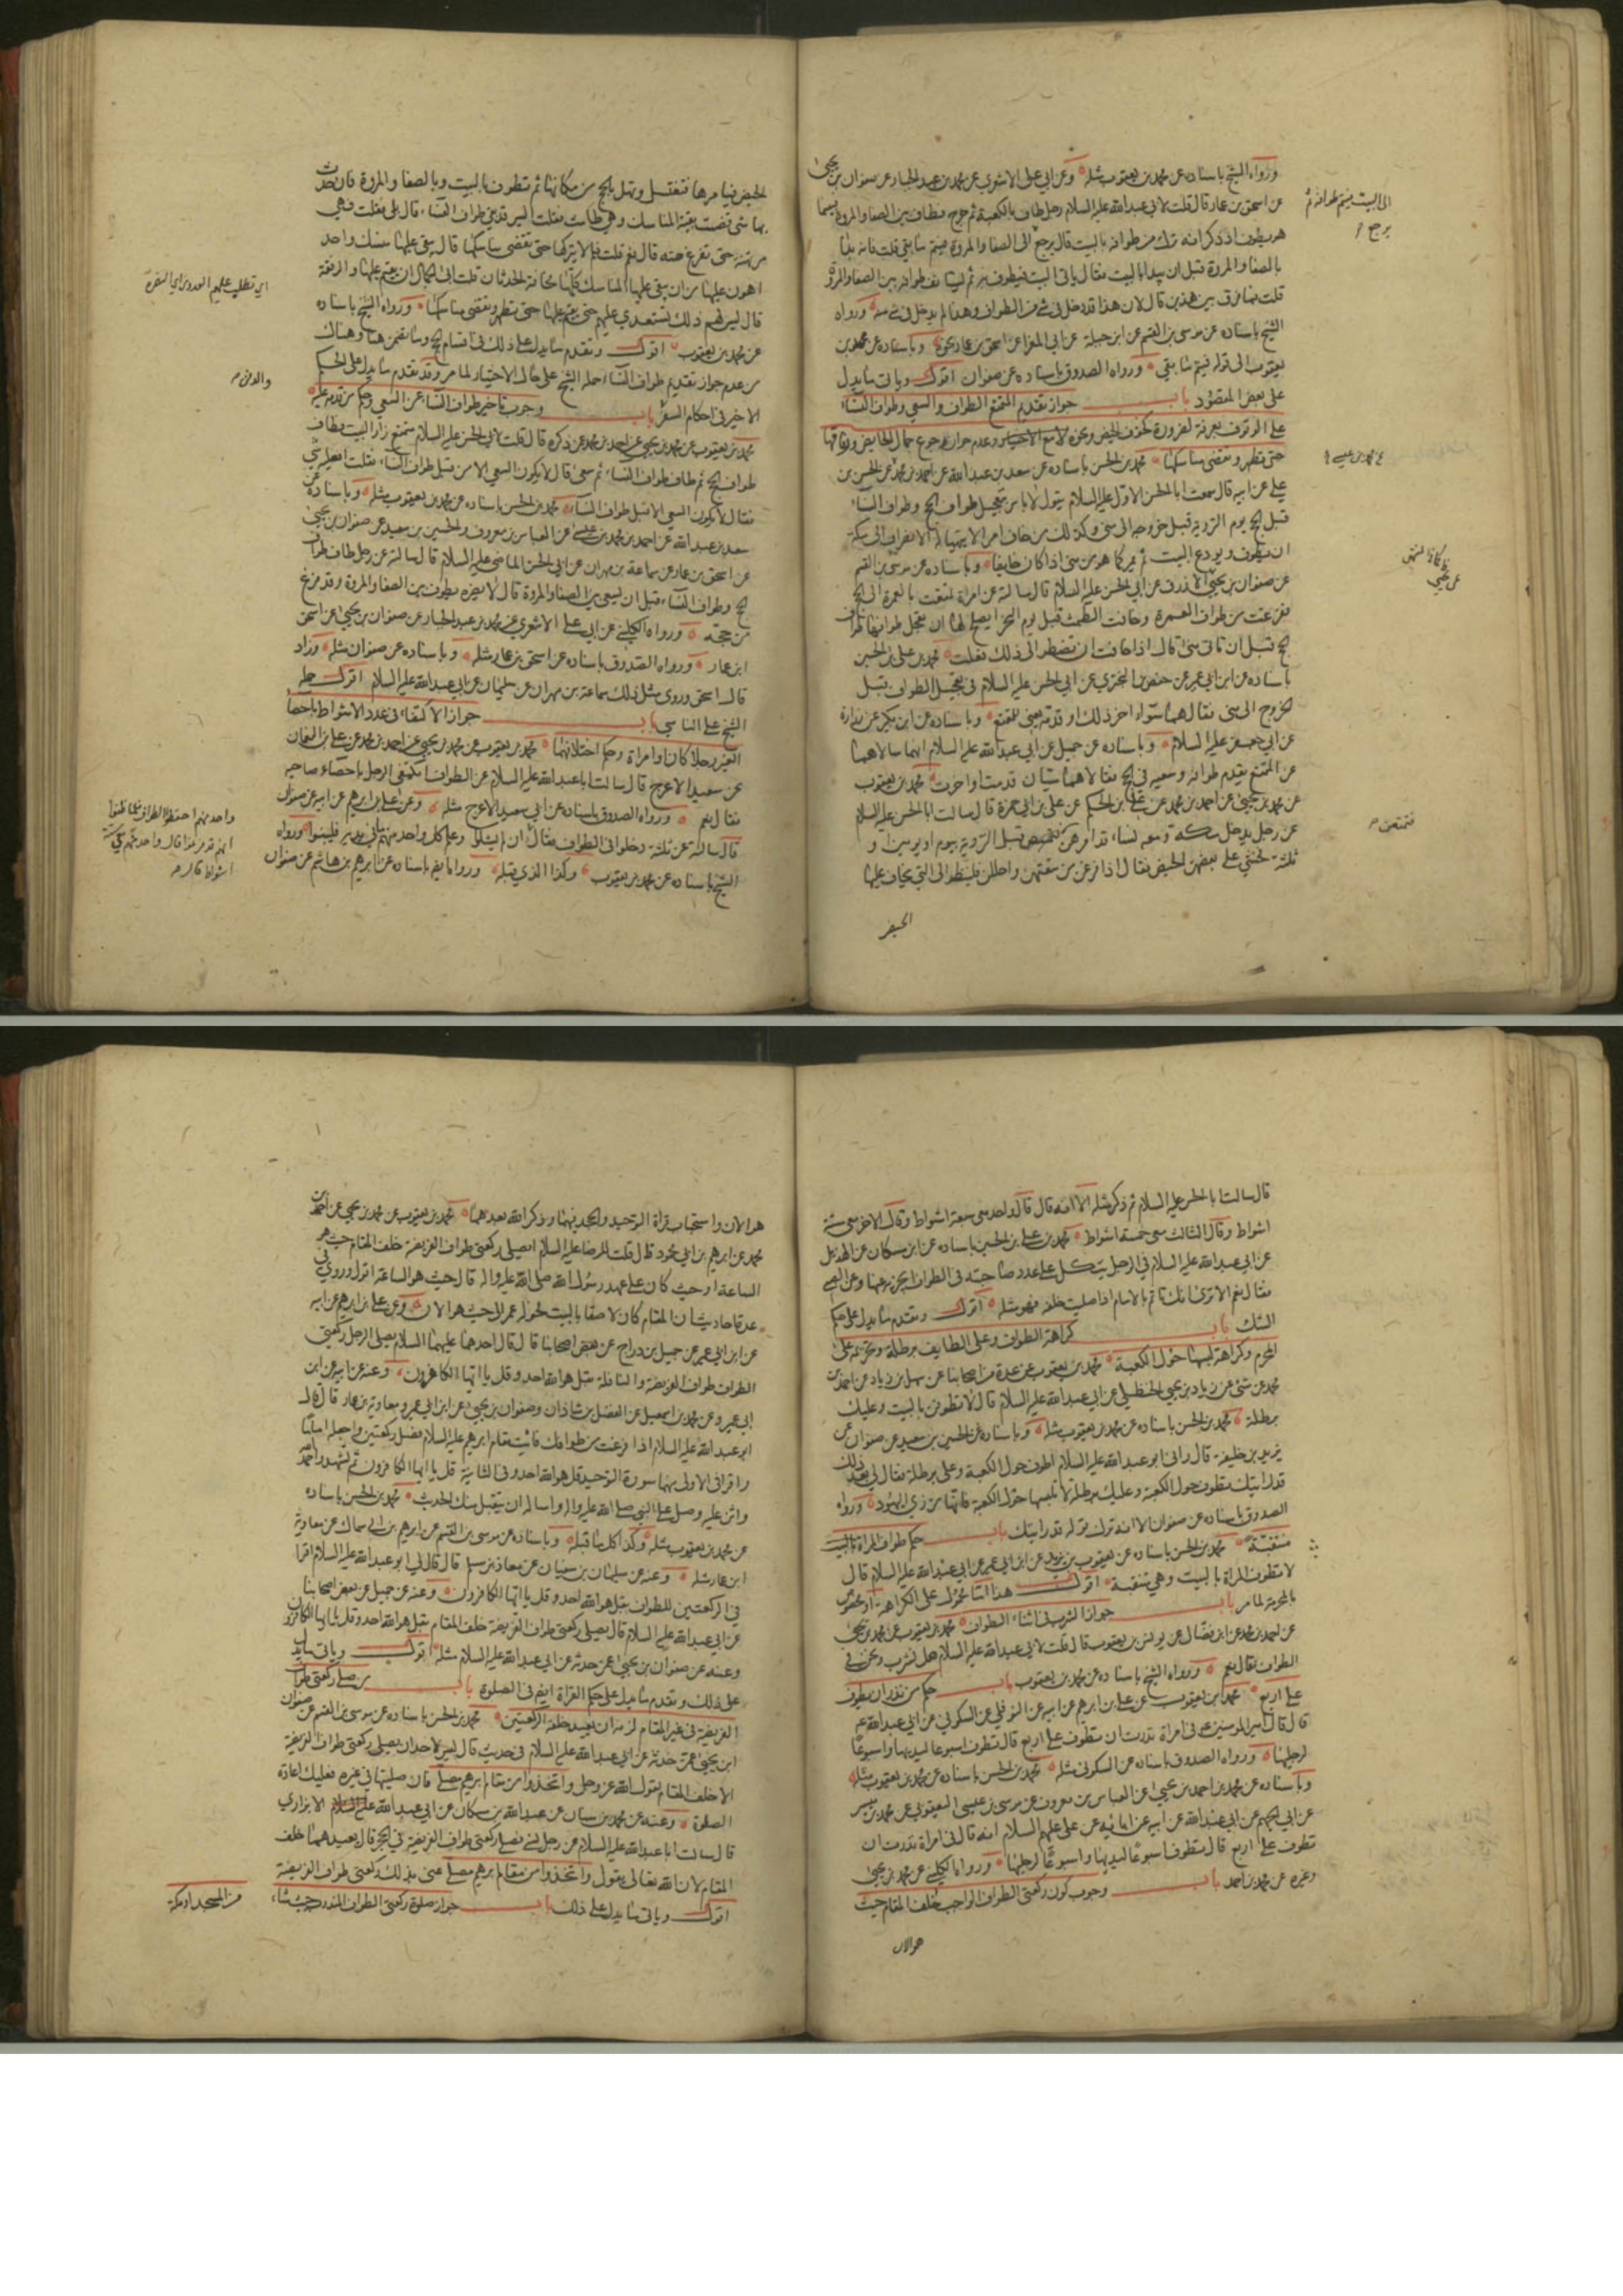 ورواه الشيخ باسناده عن محمد بن يعقوب مثله وعن ابي علي الاشعري عن محمد بن عبد الجبار عن صفوان بن يحيى
عن اسحق بن عمار قال قلت لابي عبد الله عليه السلام رجل طاف بالكعبة ثم خرج فطاف بين الصفا والمروة فبينما
هو يطوف اذ ذكر انه ترك من طوافه بالبيت قال يرجع الى الصفا والمروة فيتم ما بقي قلت فانه بدا
الى البيت فيتم طوافه ثم
يرجع
بالصفا والمروة قبل ان يبدا بالبيت فقال ياتي البيت فيطوف به ثم يستانف طوافه بين الصفا والمروة
قلت فما فرق بين هذين قال لان هذا قد دخل في شيء من الطواف وهذا لم يدخل في شيء منه ورواه
الشيخ باسناده عن موسى بن القسم عن ابن جبلة عن ابي المغرا عن اسحق بن عمار نحوه وباسناده عن محمد بن
يعقوب الى قوله فيتم ما بقي ورواه الصدوق باسناده عن صفوان اقول وياتي ما يدل
على بعض المقصود باب جواز تقديم المتمتع الطواف والسعي وطواف النساء
على الوقوف بعرفة لضرورة كخوف الحيض ونحوه لا مع الاختيار وعدم جواز رجوع جمال الحايض ورفاقها
حتى تطهر وتقضي مناسكها محمد بن الحسن باسناده عن سعد بن عبد الله عن احمد بن محمد عن الحسن بن
محمد بن عيسى
علي عن ابيه قال سمعت ابا الحسن الاول عليه السلام يقول لا باس بتعجيل طواف الحج وطواف النساء
قبل الحج يوم التروية قبل خروجه الى منى وكذلك من خاف امرا لا يتهيا له الانصراف الى مكة
ان يطوف ويودع البيت ثم يمر كما هو من منى اذا كان خايفا وباسناده عن موسى بن القسم
عن صفوان بن يحيى الازرق عن ابي الحسن عليه السلام قال سالته عن امراة تمتعت بالعمرة الى الحج
عن يحيى
ففرغت من طواف العمرة وخافت الطمث قبل يوم النحر ايصلح لها ان تعجل طوافها طواف
الحج قبل ان تاتي منى قال اذا خافت ان تضطر الى ذلك فعلت محمد بن علي بن الحسين
باسناده عن ابن ابي عمير عن حفص بن البختري عن ابي الحسن عليه السلام في تعجيل الطواف قبل
الخروج الى منى فقال هما سواء اخر ذلك او قدمه يعني للمتمتع وباسناده عن ابن بكير عن زرارة
عن ابي جعفر عليه السلام وباسناده عن جميل عن ابي عبد الله عليه السلام انهما سالاهما
عن المتمتع يقدم طوافه وسعيه في الحج فقالا هما سيان قدمت او اخرت محمد بن يعقوب
عن محمد بن يحيى عن احمد بن محمد عن علي بن الحكم عن علي بن ابي حمزة قال سالت ابا الحسن عليه السلام
عن رجل يدخل مكة ومعه نساء قد امرهن قبل التروية بيوم او يومين او
فتمتعن
ثلثة فخشي على بعضهن الحيض فقال اذا فرغن من متعتهن واحللن فلينظر الى التي يخاف عليها
الحيض
الحيض فيامرها فتغتسل وتهل بالحج من مكانها ثم تطوف بالبيت وبالصفا والمروة فان حدث
بها شيء قضت بقية المناسك وهي طامث فقلت اليس قد بقي طواف النساء قال بلى فقلت فهي
مرتهنة حتى تفرغ منه قال نعم قلت فلم لا يتركها حتى تقضي مناسكها قال يبقى عليها منسك واحد
اهون عليها من ان يبقى عليها المناسك كلها مخافة الحدثان قلت ابى الجمال ان يقيم عليها والرفقة
قال ليس لهم ذلك تستعدي عليهم حتى يقيم عليها حتى تطهر وتقضي مناسكها ورواه الشيخ باسناده
عن محمد بن يعقوب اقول وتقدم ما يدل على ذلك في اقسام الحج وما تضمن هنا وهناك
من عدم جواز تقديم طواف النساء حمله الشيخ على حال الاختيار لما مر وقد تقدم ما يدل على الحكم
والامن
الاخير في احكام السفر باب وجوب تاخير طواف النساء عن السعي وحكم من قدمه عليه
محمد بن يعقوب عن محمد بن يحيى عن احمد بن محمد عمن ذكره قال قلت لابي الحسن عليه السلام متمتع زار البيت فطاف
طواف الحج ثم طاف طواف النساء ثم سعى قال لا يكون السعي الا من قبل طواف النساء فقلت افعليه شيء
فقال لا يكون السعي الا قبل طواف النساء محمد بن الحسن باسناده عن محمد بن يعقوب مثله وباسناده عن
سعد بن عبد الله عن احمد بن محمد بن عيسى عن العباس بن معروف والحسين بن سعيد عن صفوان بن يحيى
عن اسحق بن عمار عن سماعة بن مهران عن ابي الحسن الماضي عليه السلام قال سالته عن رجل طاف طواف
الحج وطواف النساء قبل ان يسعى بين الصفا والمروة قال لا يضره يطوف بين الصفا والمروة وقد فرغ
من حجه ورواه الكليني عن ابي علي الاشعري عن محمد بن عبد الجبار عن صفوان بن يحيى عن اسحق
ابن عمار ورواه الصدوق باسناده عن اسحق بن عمار مثله وباسناده عن صفوان مثله وزاد
قال اسحق وروى مثل ذلك سماعة بن مهران عن سليمان عن ابي عبد الله عليه السلام اقول حمله
الشيخ على الناسي باب جواز الاكتفاء في عدد الاشواط باحصاء
الغير رجلا كان او امراة وحكم اختلافهما محمد بن يعقوب عن محمد بن يحيى عن احمد بن محمد عن علي بن النعمان
عن سعيد الاعرج قال سالت ابا عبد الله عليه السلام عن الطواف ايكتفي الرجل باحصاء صاحبه
فقال نعم ورواه الصدوق باسناده عن ابي سعيد الاعرج مثله وعن علي بن ابرهيم عن ابيه عن صفوان
قال سالته عن ثلثة دخلوا في الطواف فقال ان لم يشكوا وعلم كل واحد منهم ما في يديه فليبنوا ورواه
واحد منهم احفظوا الطواف فلما ظنوا
انهم قد فرغوا قال واحد منهم معي ستة
اشواط قال
الشيخ باسناده عن محمد بن يعقوب وكذا الذي قبله ورواه ايضا باسناده عن ابرهيم بن هاشم عن صفوان
قال سالت ابا الحسن عليه السلام ثم ذكر مثله الا انه قال قال واحد معي سبعة اشواط وقال الاخر معي ستة
اشواط وقال الثالث معي خمسة اشواط محمد بن علي بن الحسين باسناده عن ابن مسكان عن الهذيل
عن ابي عبد الله عليه السلام في الرجل يتكل على عدد صاحبته في الطواف ايجزيه عنها وعن الصبي
فقال نعم الا ترى انك تاتم بالامام اذا صليت خلفه فهو مثله اقول وتقدم ما يدل على حكم
الشك باب كراهة الطواف وعلى الطايف برطلة وتحريمه على
المحرم وكراهة لبسها حول الكعبة محمد بن يعقوب عن عدة من اصحابنا عن سهل بن زياد عن احمد بن
محمد عن مثنى عن زياد بن يحيى الحنظلي عن ابي عبد الله عليه السلام قال لا تطوفن بالبيت وعليك
برطلة محمد بن الحسن باسناده عن محمد بن يعقوب مثله وباسناده عن الحسين بن سعيد عن صفوان عن
يزيد بن خليفة قال راني ابو عبد الله عليه السلام اطوف حول الكعبة وعلي برطلة فقال لي بعد ذلك
قد رايتك تطوف حول الكعبة وعليك برطلة لا تلبسها حول الكعبة فانها من زي اليهود ورواه
الصدوق باسناده عن صفوان الا انه ترك قوله قد رايتك باب حكم طواف المراة بالبيت
متنقبة محمد بن الحسن باسناده عن يعقوب بن يزيد عن ابن ابي عمير عن ابي عبد الله عليه السلام قال
لا تطوف المراة بالبيت وهي متنقبة اقول هذا اما محمول على الكراهة او مخصوص
بالمحرمة لما مر باب جواز الشرب في اثناء الطواف محمد بن يعقوب عن محمد بن يحيى
عن احمد بن محمد عن ابن فضال عن يونس بن يعقوب قال قلت لابي عبد الله عليه السلام هل نشرب ونحن في
الطواف فقال نعم ورواه الشيخ باسناده عن محمد بن يعقوب باب حكم من نذر ان يطوف
على اربع محمد بن يعقوب عن علي بن ابرهيم عن ابيه عن النوفلي عن السكوني عن ابي عبد الله ع
قال قال امير المومنين ع في امراة نذرت ان تطوف على اربع قال تطوف اسبوعا ليديها واسبوعا
لرجليها ورواه الصدوق باسناده عن السكوني مثله محمد بن الحسن باسناده عن محمد بن يعقوب مثله
وباسناده عن محمد بن احمد بن يحيى عن العباس بن معروف عن موسى بن عيسى اليعقوبي عن محمد بن ميسر
عن ابي الجهم عن ابي عبد الله عن ابيه عن ابائه عن علي عليهم السلام انه قال في امراة نذرت ان
تطوف على اربع قال تطوف اسبوعا ليديها واسبوعا لرجليها ورواه الكليني عن محمد بن يحيى
وغيره عن محمد بن احمد باب وجوب كون ركعتي الطواف الواجب خلف المقام حيث
هو الان
هو الان واستحباب قراة التوحيد والجحد فيهما وذكر الله بعدهما محمد بن يعقوب عن محمد بن يحيى عن احمد بن
محمد عن ابرهيم بن ابي محمود قال قلت للرضا عليه السلام اصلي ركعتي طواف الفريضة خلف المقام حيث هو
الساعة او حيث كان على عهد رسول الله صلى الله عليه واله قال حيث هو الساعة اقول وروي في
عدة احاديث ان المقام كان لاصقا بالبيت فحوله عمر الى حيث هو الان وعن علي بن ابرهيم عن ابيه
عن ابن ابي عمير عن جميل بن دراج عن بعض اصحابنا قال قال احدهما عليهما السلام يصلي الرجل ركعتي
الطواف طواف الفريضة والنافلة بقل هو الله احد وقل يا ايها الكافرون وعنه عن ابيه عن ابن
ابي عمير وعن محمد بن اسمعيل عن الفضل بن شاذان وصفوان بن يحيى عن ابن ابي عمير ومعاوية بن عمار قال قال
ابو عبد الله عليه السلام اذا فرغت من طوافك فائت مقام ابرهيم عليه السلام فصل ركعتين واجعله اماما
واقرا في الاولى منهما سورة التوحيد قل هو الله احد وفي الثانية قل يا ايها الكافرون ثم تشهد واحمد الله
واثن عليه وصل على النبي صلى الله عليه واله واساله ان يتقبل منك الحديث محمد بن الحسن باسناده
عن محمد بن يعقوب مثله وكذا كل ما قبله وباسناده عن موسى بن القسم عن ابرهيم بن ابي سماك عن معاوية
ابن عمار مثله وعنه عن سليمان بن سفيان عن معاذ بن مسلم قال قال لي ابو عبد الله عليه السلام اقرا
في الركعتين للطواف بقل هو الله احد وقل يا ايها الكافرون وعنه عن جميل عن بعض اصحابنا
عن ابي عبد الله عليه السلام قال يصلي ركعتي طواف الفريضة خلف المقام بقل هو الله احد وقل يا ايها الكافرون
وعنه عن صفوان بن يحيى عمن حدثه عن ابي عبد الله عليه السلام مثله اقول وياتي ما يدل
على ذلك وتقدم ما يدل على حكم القراة ايضا في الصلوة باب من صلى ركعتي طواف
الفريضة في غير المقام لزمه ان يعيد خلفه الركعتين محمد بن الحسن باسناده عن موسى بن القسم عن صفوان
ابن يحيى عمن حدثه عن ابي عبد الله عليه السلام في حديث قال ليس لاحد ان يصلي ركعتي طواف الفريضة
الا خلف المقام لقول الله عز وجل واتخذوا من مقام ابرهيم مصلى فان صليتها في غيره فعليك اعادة
الصلوة وعنه عن محمد بن سنان عن عبد الله بن مسكان عن ابي عبد الله الابزاري
قال سالت ابا عبد الله عليه السلام عن رجل نسي فصلى ركعتي طواف الفريضة في الحجر قال يعيدهما خلف
المقام لان الله تعالى يقول واتخذوا من مقام ابرهيم مصلى عنى بذلك ركعتي طواف الفريضة
اقول وياتي ما يدل على ذلك باب جواز صلوة ركعتي الطواف المندوب حيث شاء
من المسجد او مكة